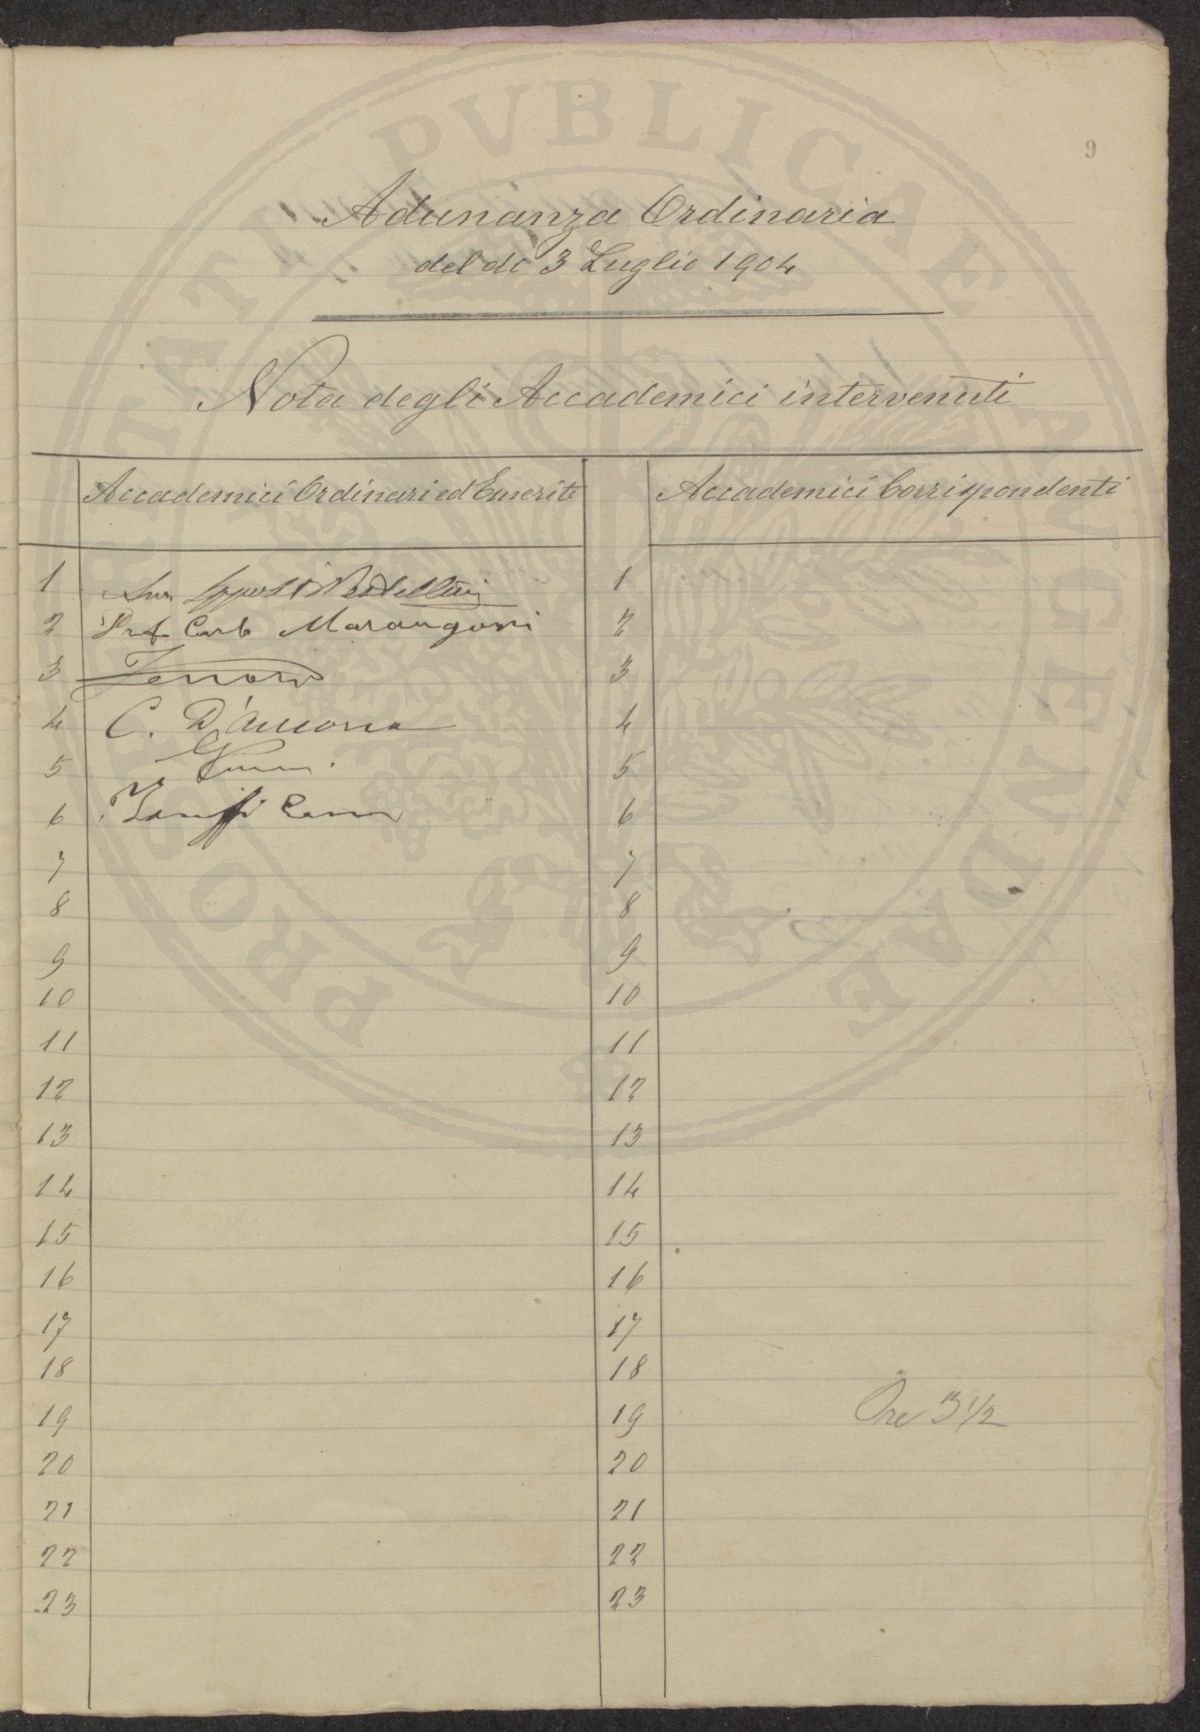 9
Adunanza Ordinaria
del dì 3 Luglio 1904
Nota degli Accademici intervenuti
Accademici Ordinari ed Emeriti
Accademici Corrispondenti
1 1
2 Prof. Carlo Marangoni 2
3 3
4 C. D'Ancona 4
5 5
6 6
7 7
8 8
9 9
10 10
11 11
12 12
13 13
14 14
15 15
16 16
17 17
18 18
19 19 Ore 3 1/2
20 20
21 21
22 22
23 23
PROSPERITATI PVBLICAE AVGENDAE